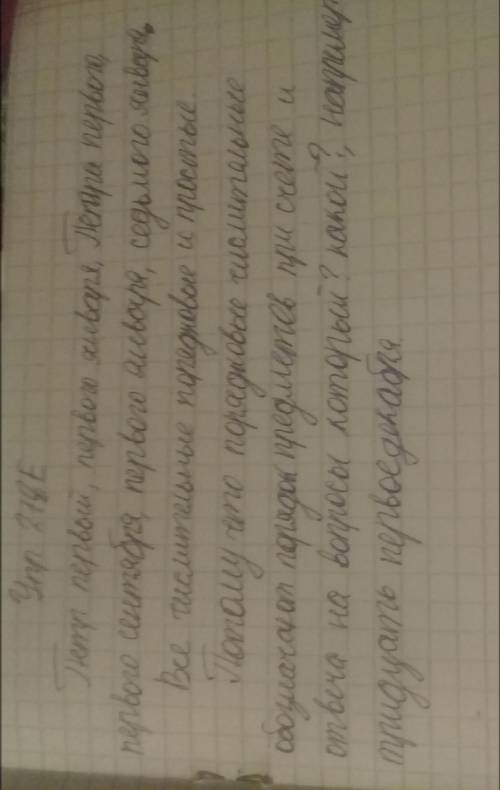 Упр. 218Е
Петр первый, первого января, Петра первого,
первого сентября, первого января, седьмого января,
Все числительные порядковые и простые.
Потому что порядковые числительные
обозначают порядок предметов при счете и
отвеча на вопросы который? какой?, наприме
тридцать первое декабря